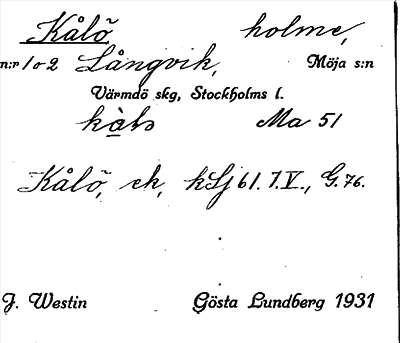 Kålö, holme,
n:r 1 o 2 Långvik, Möja s:n
Värmdö skg, Stockholms l.
Ma 51
Kålö, ek, kLj 61. 7. V., G. 76.
J. Westin Gösta Lundberg 1931